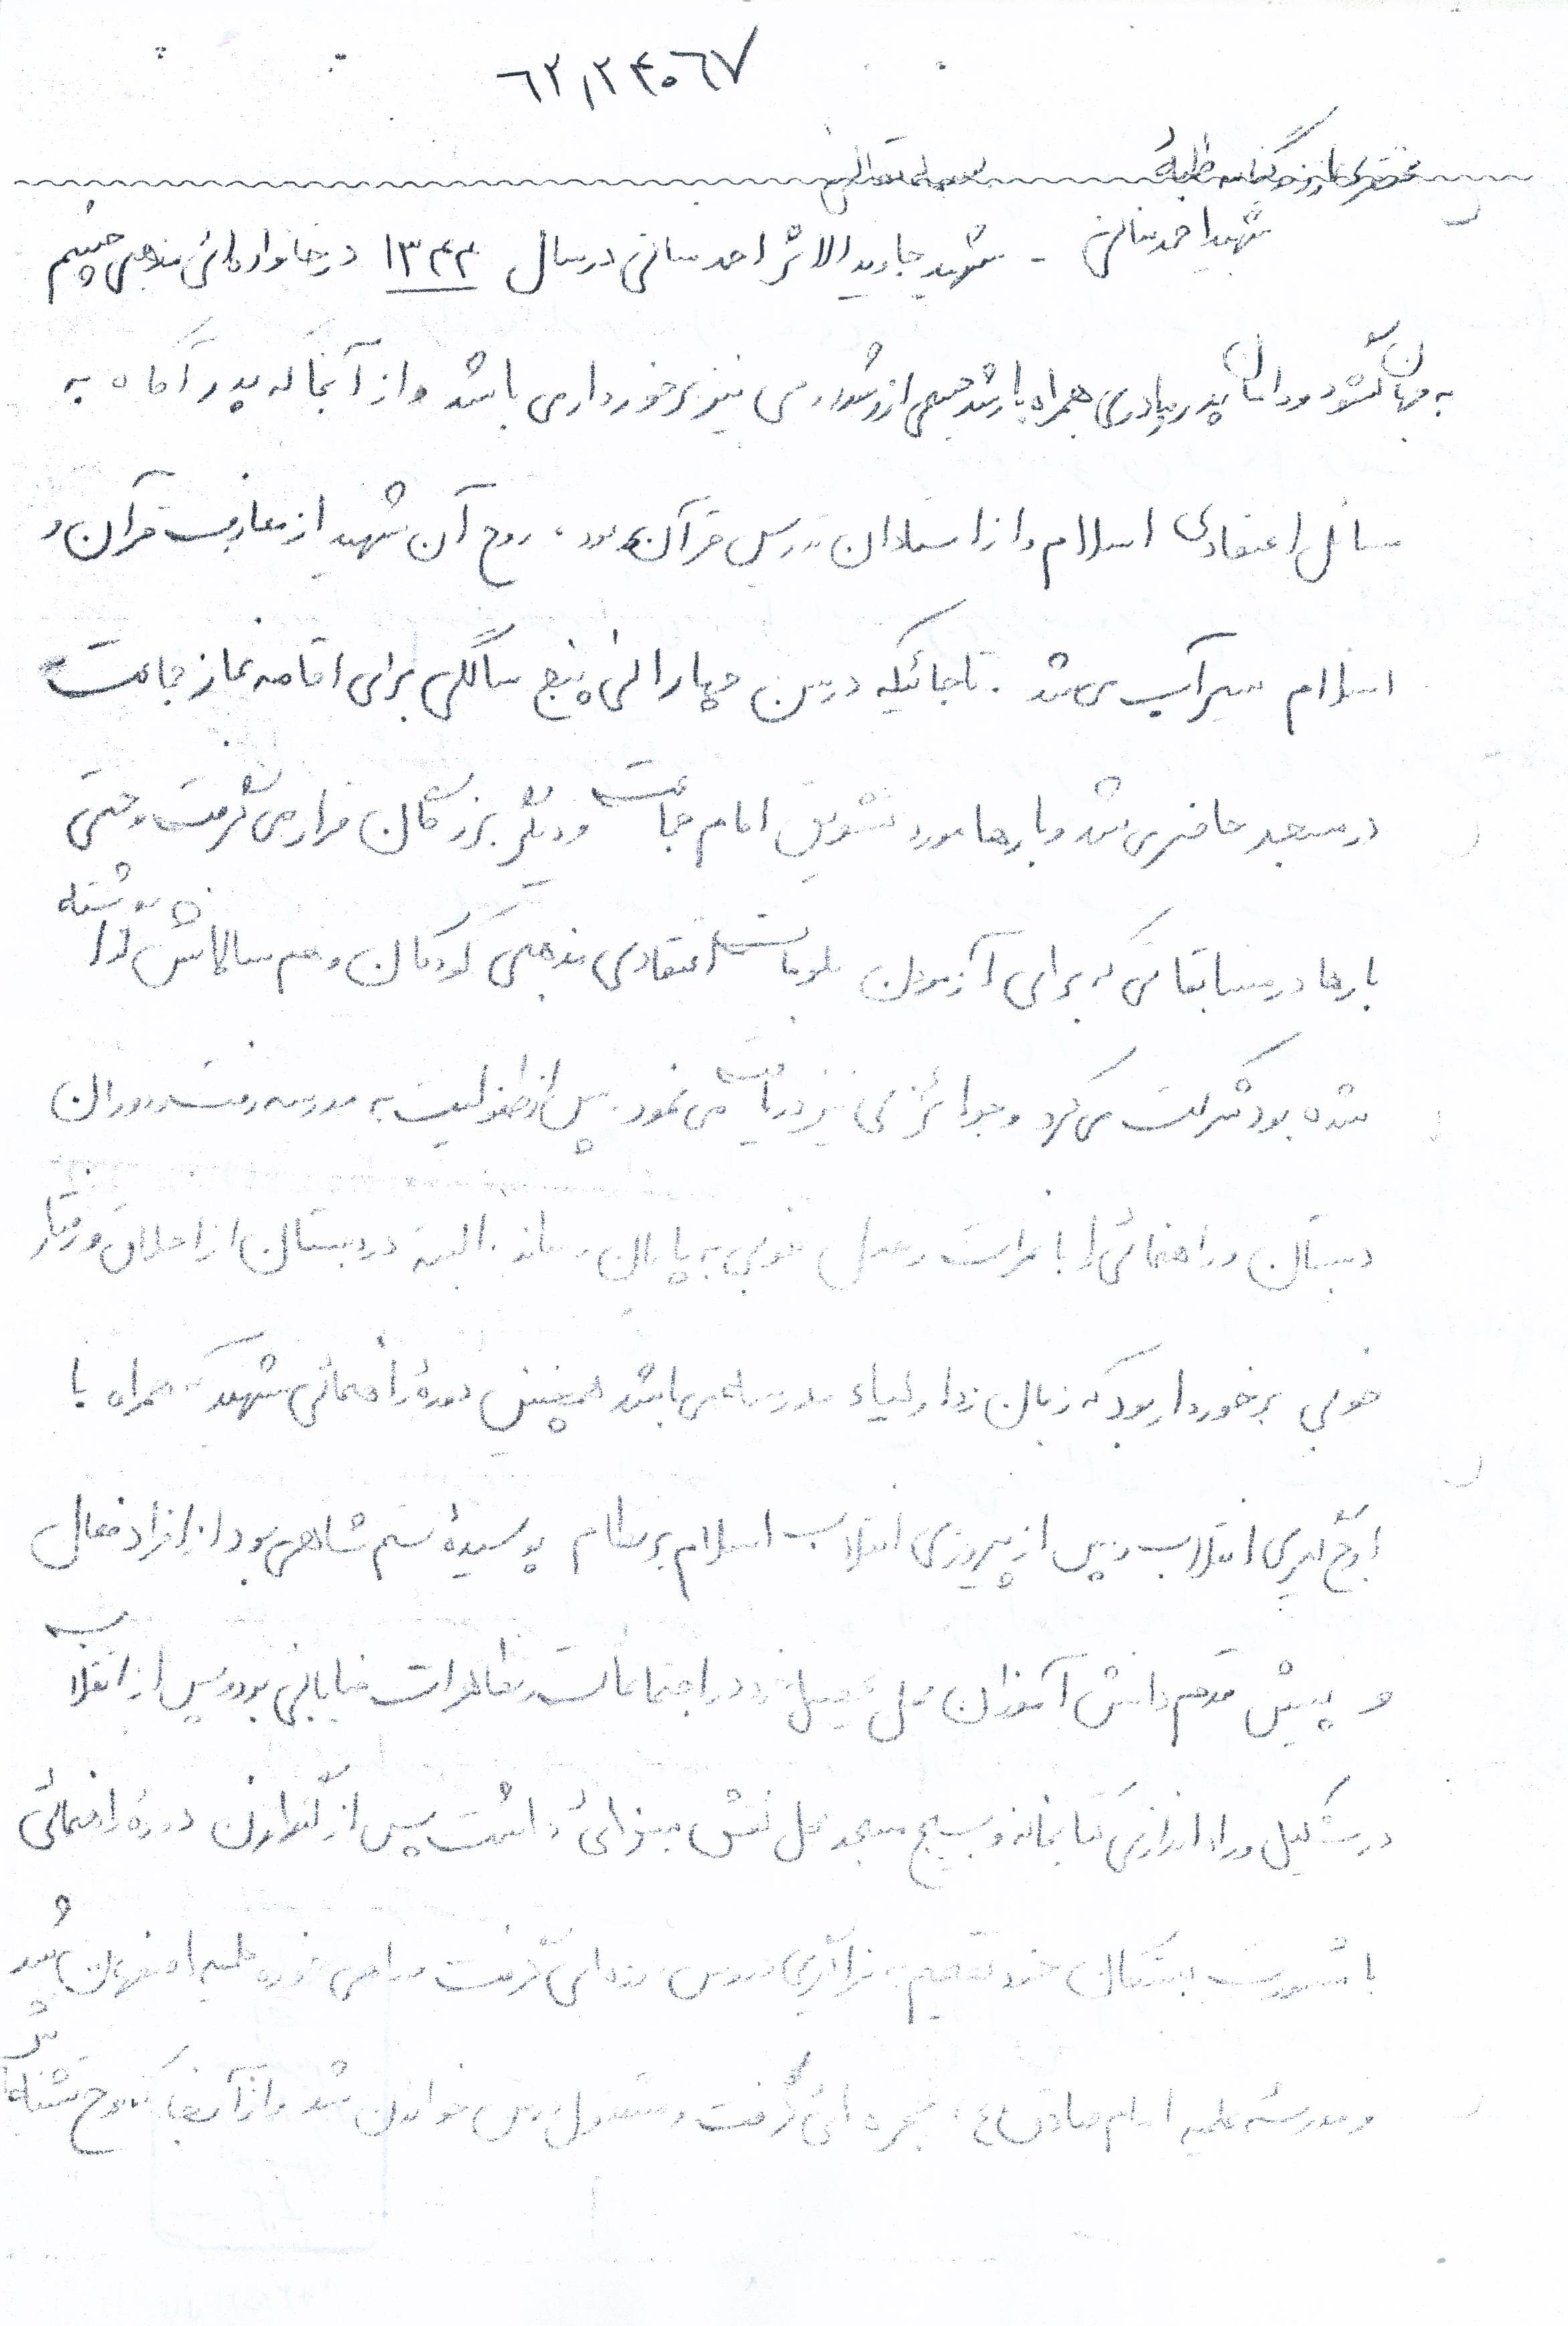 ۶۲,۲۴۰۶۷
مختصری از زندگینامه طلبهٔ بسمه تعالی
شهید احمد سالنی - شهید جاوید الاثر احمد سالنی در سال ۱۳۴۴ در خانواده‌ائی مذهبی چشم
به جهان گشود و دامان پدر و مادری همراه با رشد جسمی از رشد می نیز برخوردار می باشد و از آنجا که پدر آگاه به
مسائل اعتقادی اسلام و از استادان تدریس قرآن بود، روح آن شهید از معارف قرآن و
اسلام سیرآب می شد. تا جائیکه در سن چهار الی پنج سالگی برای اقامه نماز جماعت
در مسجد حاضر می شد و بارها مورد تشویق امام جماعت و دیگر بزرگان قرار می گرفت و حتی
بارها در مسابقاتی که برای آزمودن معلومات اعتقادی مذهبی کودکان و هم سالانش گذاشته
شده بود شرکت می کرد و جوائزی نیز دریافت می نمود. پس از طفولیت به مدرسه رفت و دوران
دبستان و راهنمائی را با نمرات و معدل خوبی به پایان رساند. البته در دبستان از اخلاق و رفتار
خوبی برخوردار بود که زبان زد اولیاء مدرسه می باشد همچنین دورهٔ راهنمائی شهید که همراه با
اوج گیری انقلاب و پس از پیروزی انقلاب اسلام بر نظام پوسیدهٔ ستم شاهی بود از افراد فعال
و پیش قدم دانش آموزان محل تحصیل خود در اجتماعات و تظاهرات خیابانی بود و پس از انقلاب
در تشکیل و راه اندازی کتابخانه و بسیج مسجد محل نقش بسزائی داشت پس از گذراندن دورهٔ راهنمائی
با مشورت بستگان خود تصمیم به فراگیری دروس حوزه ای گرفت و راهی حوزه علمیه اصفهان شد و
در مدرسهٔ علمیه امام صادق (ع) حجره ائی گرفت و مشغول درس خواندن شد و از آنجا که روح تشنه